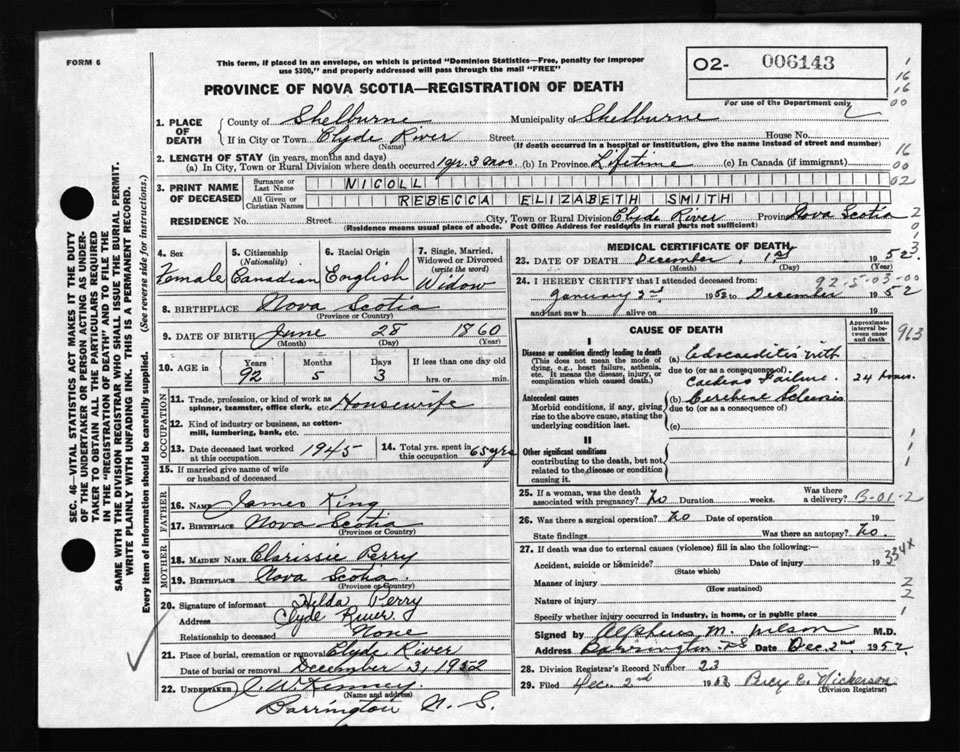 FORM 6
This form, if placed in an envelope, on which is printed "Dominion Statistics—Free, penalty for improper
use $300," and properly addressed will pass through the mail "FREE"
O2- 006143
For use of the Department only
PROVINCE OF NOVA SCOTIA—REGISTRATION OF DEATH
1. PLACE OF DEATH
County of Shelburne Municipality of Shelburne
If in City or Town Clyde River Street House No.
(Name) (If death occurred in a hospital or institution, give the name instead of street and number)
2. LENGTH OF STAY (in years, months and days)
(a) In City, Town or Rural Division where death occurred 1 yr. 3 mos. (b) In Province Lifetime (c) In Canada (if immigrant)
3. PRINT NAME OF DECEASED
Surname or Last Name NICOLL
All Given or Christian Names REBECCA ELIZABETH SMITH
RESIDENCE No. Street City, Town or Rural Division Clyde River Province Nova Scotia
(Residence means usual place of abode. Post Office Address for residents in rural parts not sufficient)
4. Sex
Female
5. Citizenship
(Nationality)
Canadian
6. Racial Origin
English
7. Single, Married,
Widowed or Divorced
(write the word)
Widow
8. BIRTHPLACE Nova Scotia
(Province or Country)
9. DATE OF BIRTH June 28 1860
(Month) (Day) (Year)
10. AGE in Years Months Days If less than one day old
92 5 3 hrs. or min.
OCCUPATION
11. Trade, profession, or kind of work as
spinner, teamster, office clerk, etc Housewife
12. Kind of industry or business, as cotton-
mill, lumbering, bank, etc.
13. Date deceased last worked
at this occupation 1945
14. Total yrs. spent in
this occupation 65 yrs
15. If married give name of wife
or husband of deceased
FATHER
16. NAME James King
17. BIRTHPLACE Nova Scotia
(Province or Country)
MOTHER
18. MAIDEN NAME Clarissie Perry
19. BIRTHPLACE Nova Scotia.
(Province or Country)
20. Signature of informant Hilda Perry
Address Clyde River.
Relationship to deceased None
21. Place of burial, cremation or removal Clyde River
Date of burial or removal December 3, 1952
22. UNDERTAKER W. Kenney
(Name and address)
Barrington N. S.
MEDICAL CERTIFICATE OF DEATH
23. DATE OF DEATH December, 1st 1952
(Month) (Day) (Year)
92-5-03-00
24. I HEREBY CERTIFY that I attended deceased from:
January 1952 to December 1952
and last saw h alive on
CAUSE OF DEATH
Approximate
interval be-
tween onset
and death
I
Disease or condition directly leading to death
(This does not mean the mode of
dying, e.g., heart failure, asthenia,
etc. It means the disease, injury, or
complication which caused death.)
(a) with
due to (or as a consequence of)
Failure. 24 hours.
Antecedent causes
Morbid conditions, if any, giving
rise to the above cause, stating the
underlying condition last.
(b)
due to (or as a consequence of)
(c)
II
Other significant conditions
contributing to the death, but not
related to the disease or condition
causing it.
25. If a woman, was the death
associated with pregnancy? No Duration weeks. Was there a delivery? B-01-2
26. Was there a surgical operation? No Date of operation 19
State findings Was there an autopsy? No.
27. If death was due to external causes (violence) fill in also the following:—
334X
Accident, suicide or homicide? Date of injury 19
(State which)
Manner of injury
(How sustained)
Nature of injury
Specify whether injury occurred in industry, in home, or in public place
Signed by Alpheus M. Wilson M.D.
Address Barrington NS Date Dec. 2nd 1952
28. Division Registrar's Record Number 23
29. Filed Dec. 2nd Percy E. Nickerson
(Division Registrar)
SEC. 46—VITAL STATISTICS ACT MAKES IT THE DUTY
OF THE UNDERTAKER OR PERSON ACTING AS UNDER-
TAKER TO OBTAIN ALL THE PARTICULARS REQUIRED
IN THE "REGISTRATION OF DEATH" AND TO FILE THE
SAME WITH THE DIVISION REGISTRAR WHO SHALL ISSUE THE BURIAL PERMIT.
WRITE PLAINLY WITH UNFADING INK. THIS IS A PERMANENT RECORD.
Every item of information should be carefully supplied. (See reverse side for instructions.)
1
16
16
00
16
00
02
2
0
1
3
963
1
1
1
2
2
1